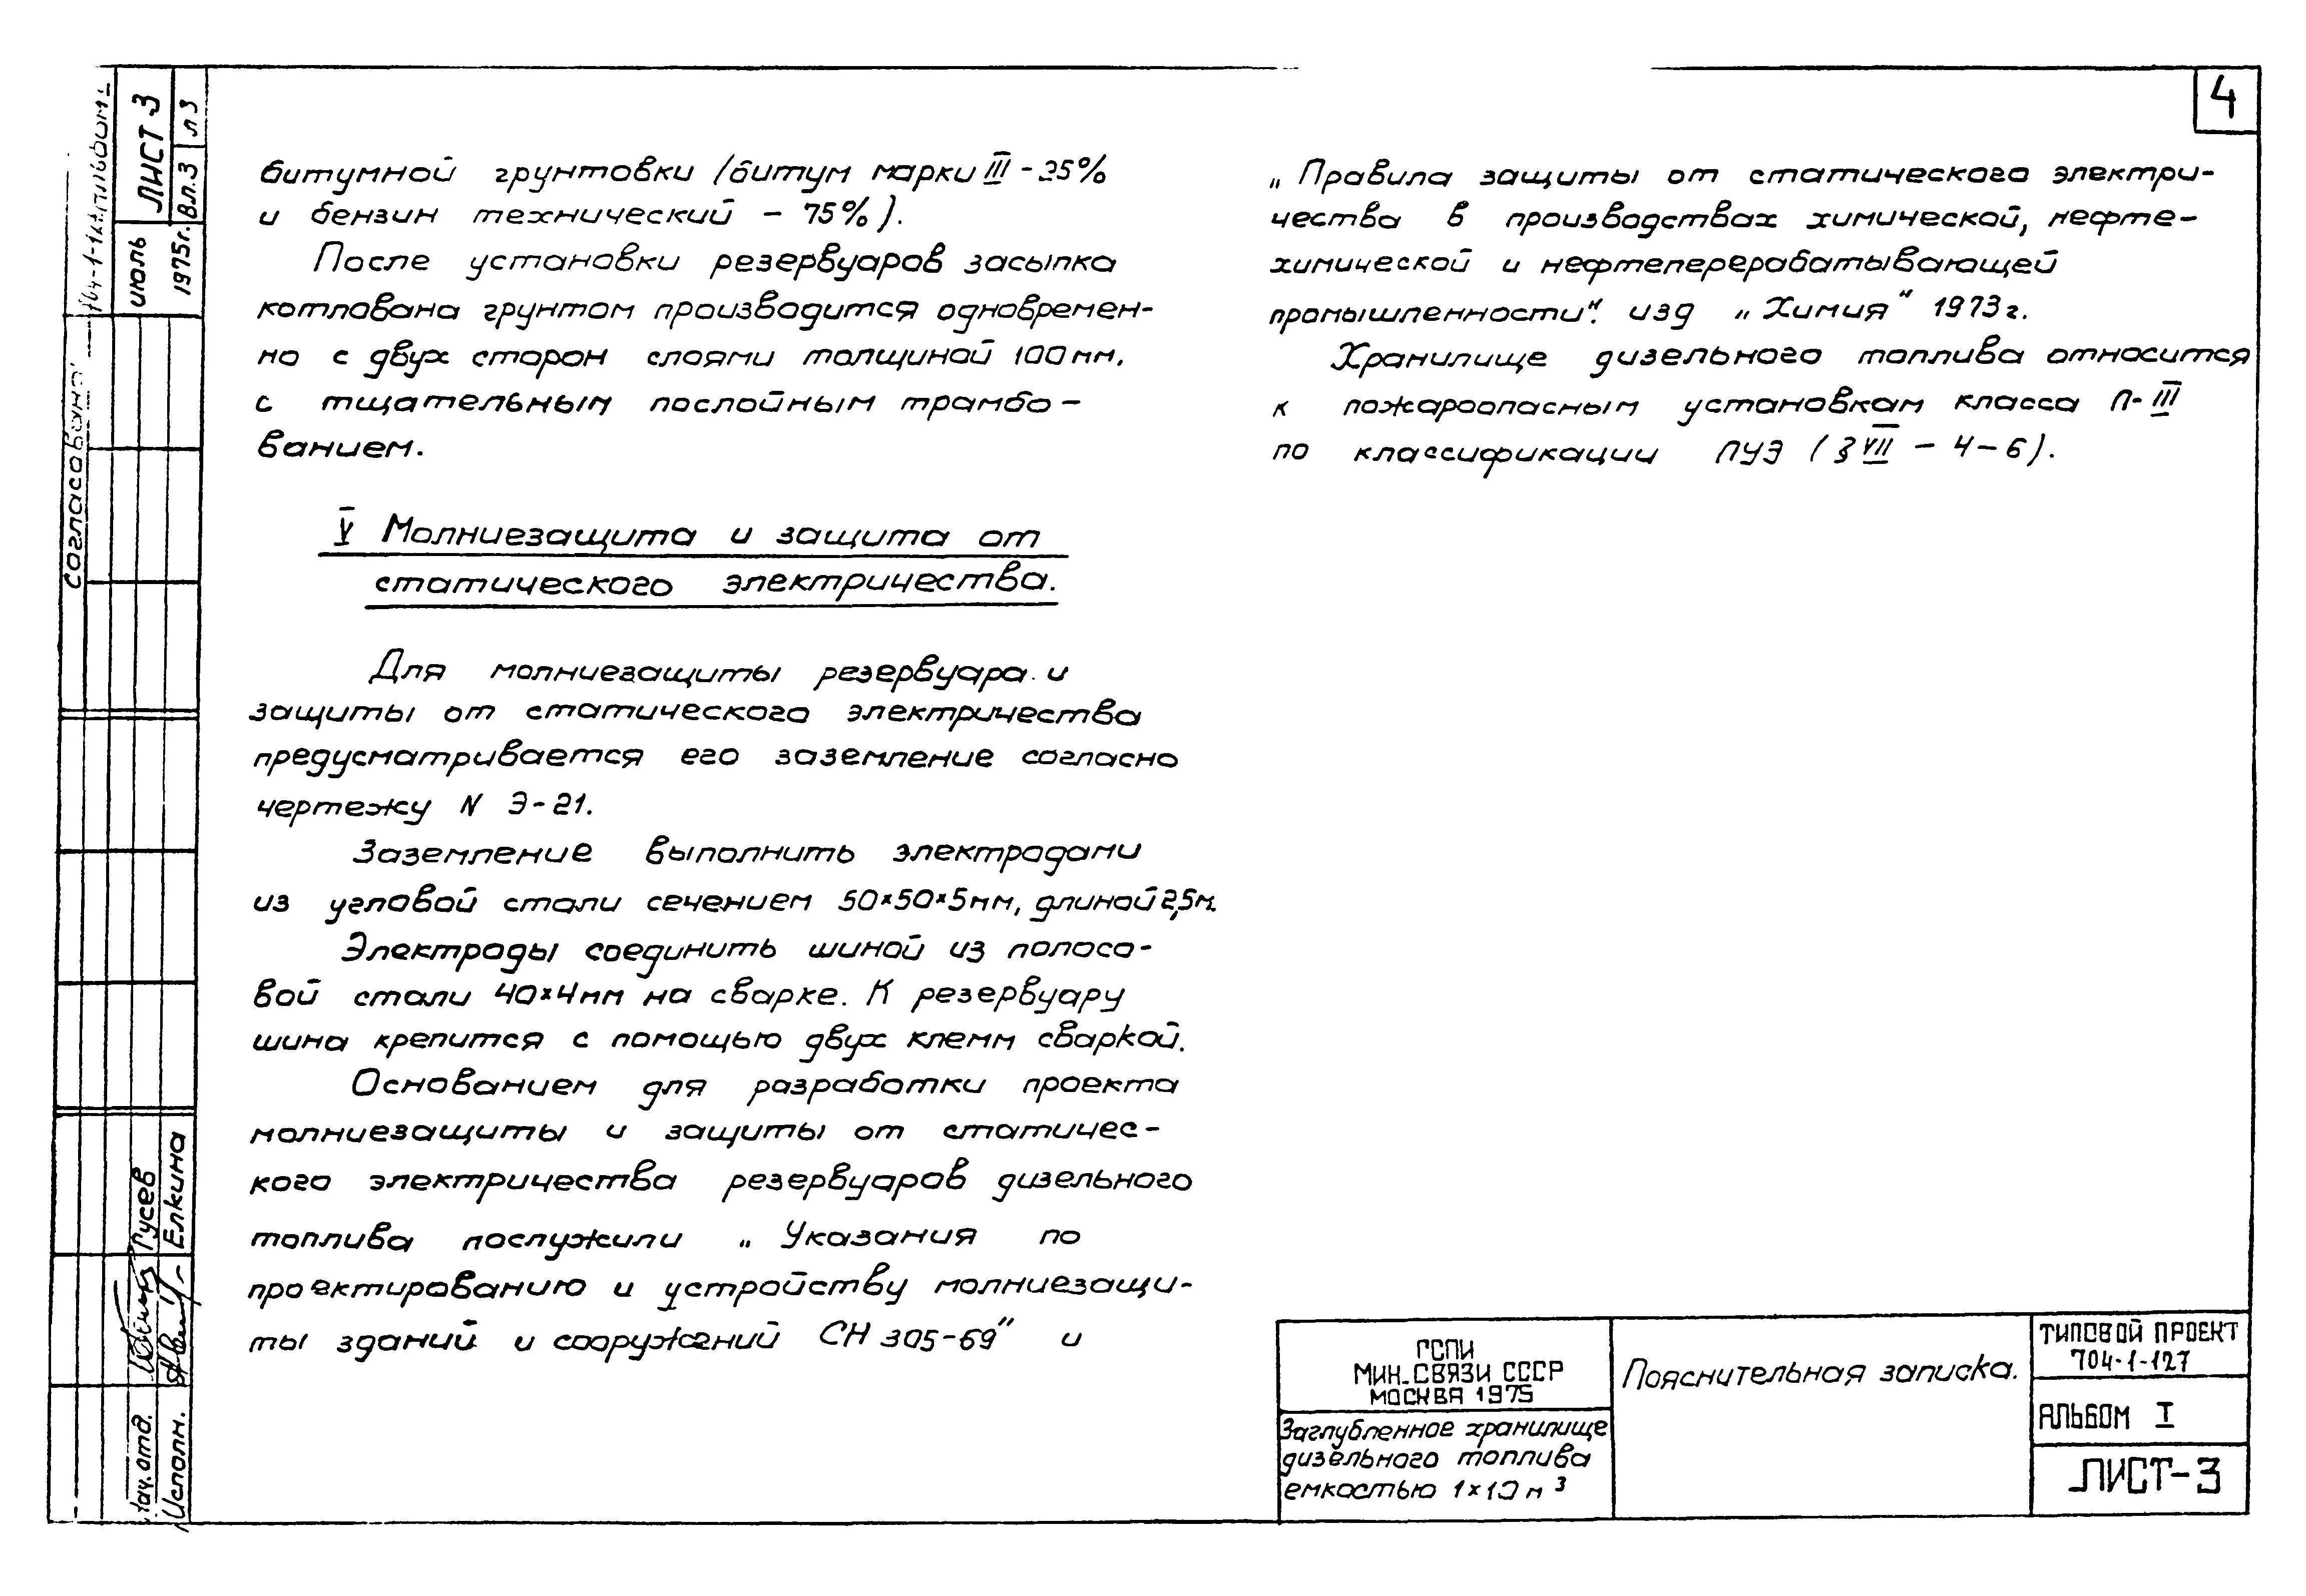 4
битумной грунтовки /битум марки III - 25%
и бензин технический - 75%).
После установки резервуаров засыпка
котлована грунтом производится одновремен-
но с двух сторон слоями толщиной 100мм,
с тщательным послойным трамбо-
ванием.
V Молниезащита и защита от
статического электричества.
Для молниезащиты резервуара и
защиты от статического электричества
предусматривается его заземление согласно
чертежу N Э-21.
Заземление выполнить электродами
из угловой стали сечением 50×50×5мм, длиной 2,5м.
Электроды соединить шиной из полосо-
вой стали 40×4мм на сварке. К резервуару
шина крепится с помощью двух клемм сваркой.
Основанием для разработки проекта
молниезащиты и защиты от статичес-
кого электричества резервуаров дизельного
топлива послужили „Указания по
проектированию и устройству молниезащи-
ты зданий и сооружений СН 305-69" и
„Правила защиты от статического электри-
чества в производствах химической, нефте-
химической и нефтеперерабатывающей
промышленности". изд „Химия" 1973г.
Хранилище дизельного топлива относится
к пожароопасным установкам класса П-III
по классификации ПУЭ (§ VII - 4-6).
ГСПИ
МИН.СВЯЗИ СССР
МОСКВА 1975
Заглубленное хранилище
дизельного топлива
емкостью 1×10м³
Пояснительная записка.
ТИПОВОЙ ПРОЕКТ
704-1-127
АЛЬБОМ I
ЛИСТ-3
ЛИСТ-3
В.Л.3 Л3
июль
1975г.
согласовано
Гусев
Елкина
Нач.отд.
Исполн.